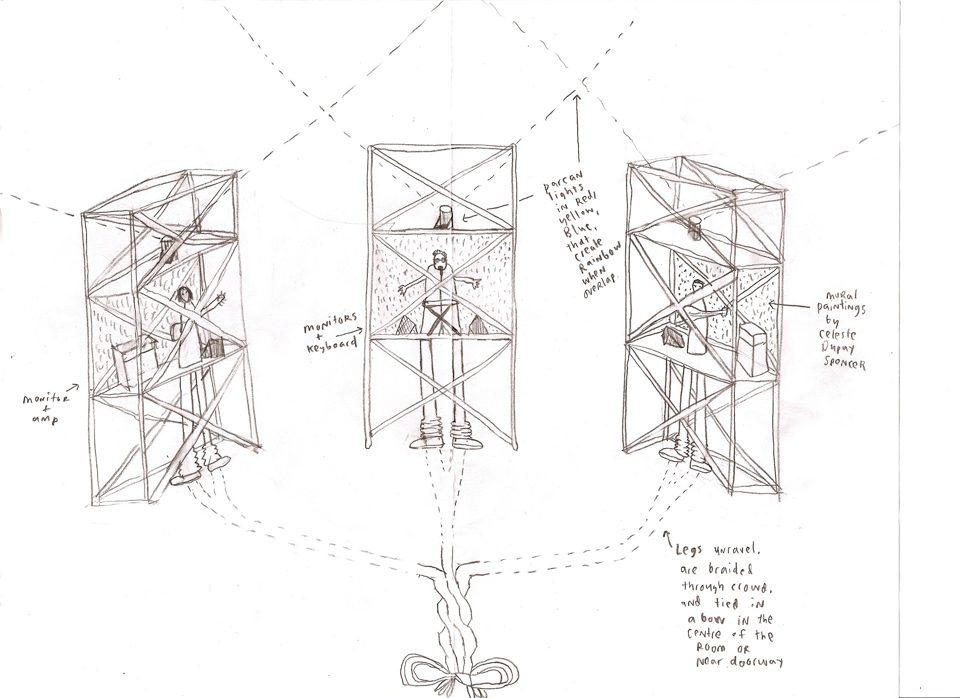 parcan
lights
in Red,
yellow,
Blue,
that
create
Rainbow
when
overlap.
monitors
+
keyboard
mural
paintings
by
Celeste
Dupuy
Spencer
monitor
+
amp
Legs unravel,
are braided
through crowd,
and tied in
a bow in the
centre of the
Room or
near doorway